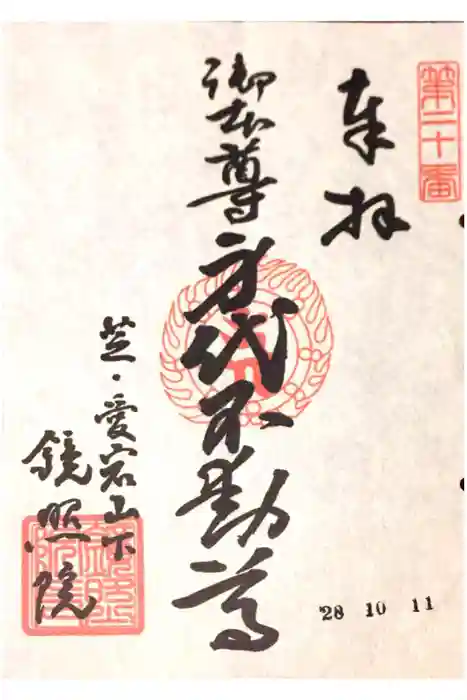 第二十番
奉拝
'28 10 11
御本尊身代不動尊
芝・愛宕山下
鏡照院